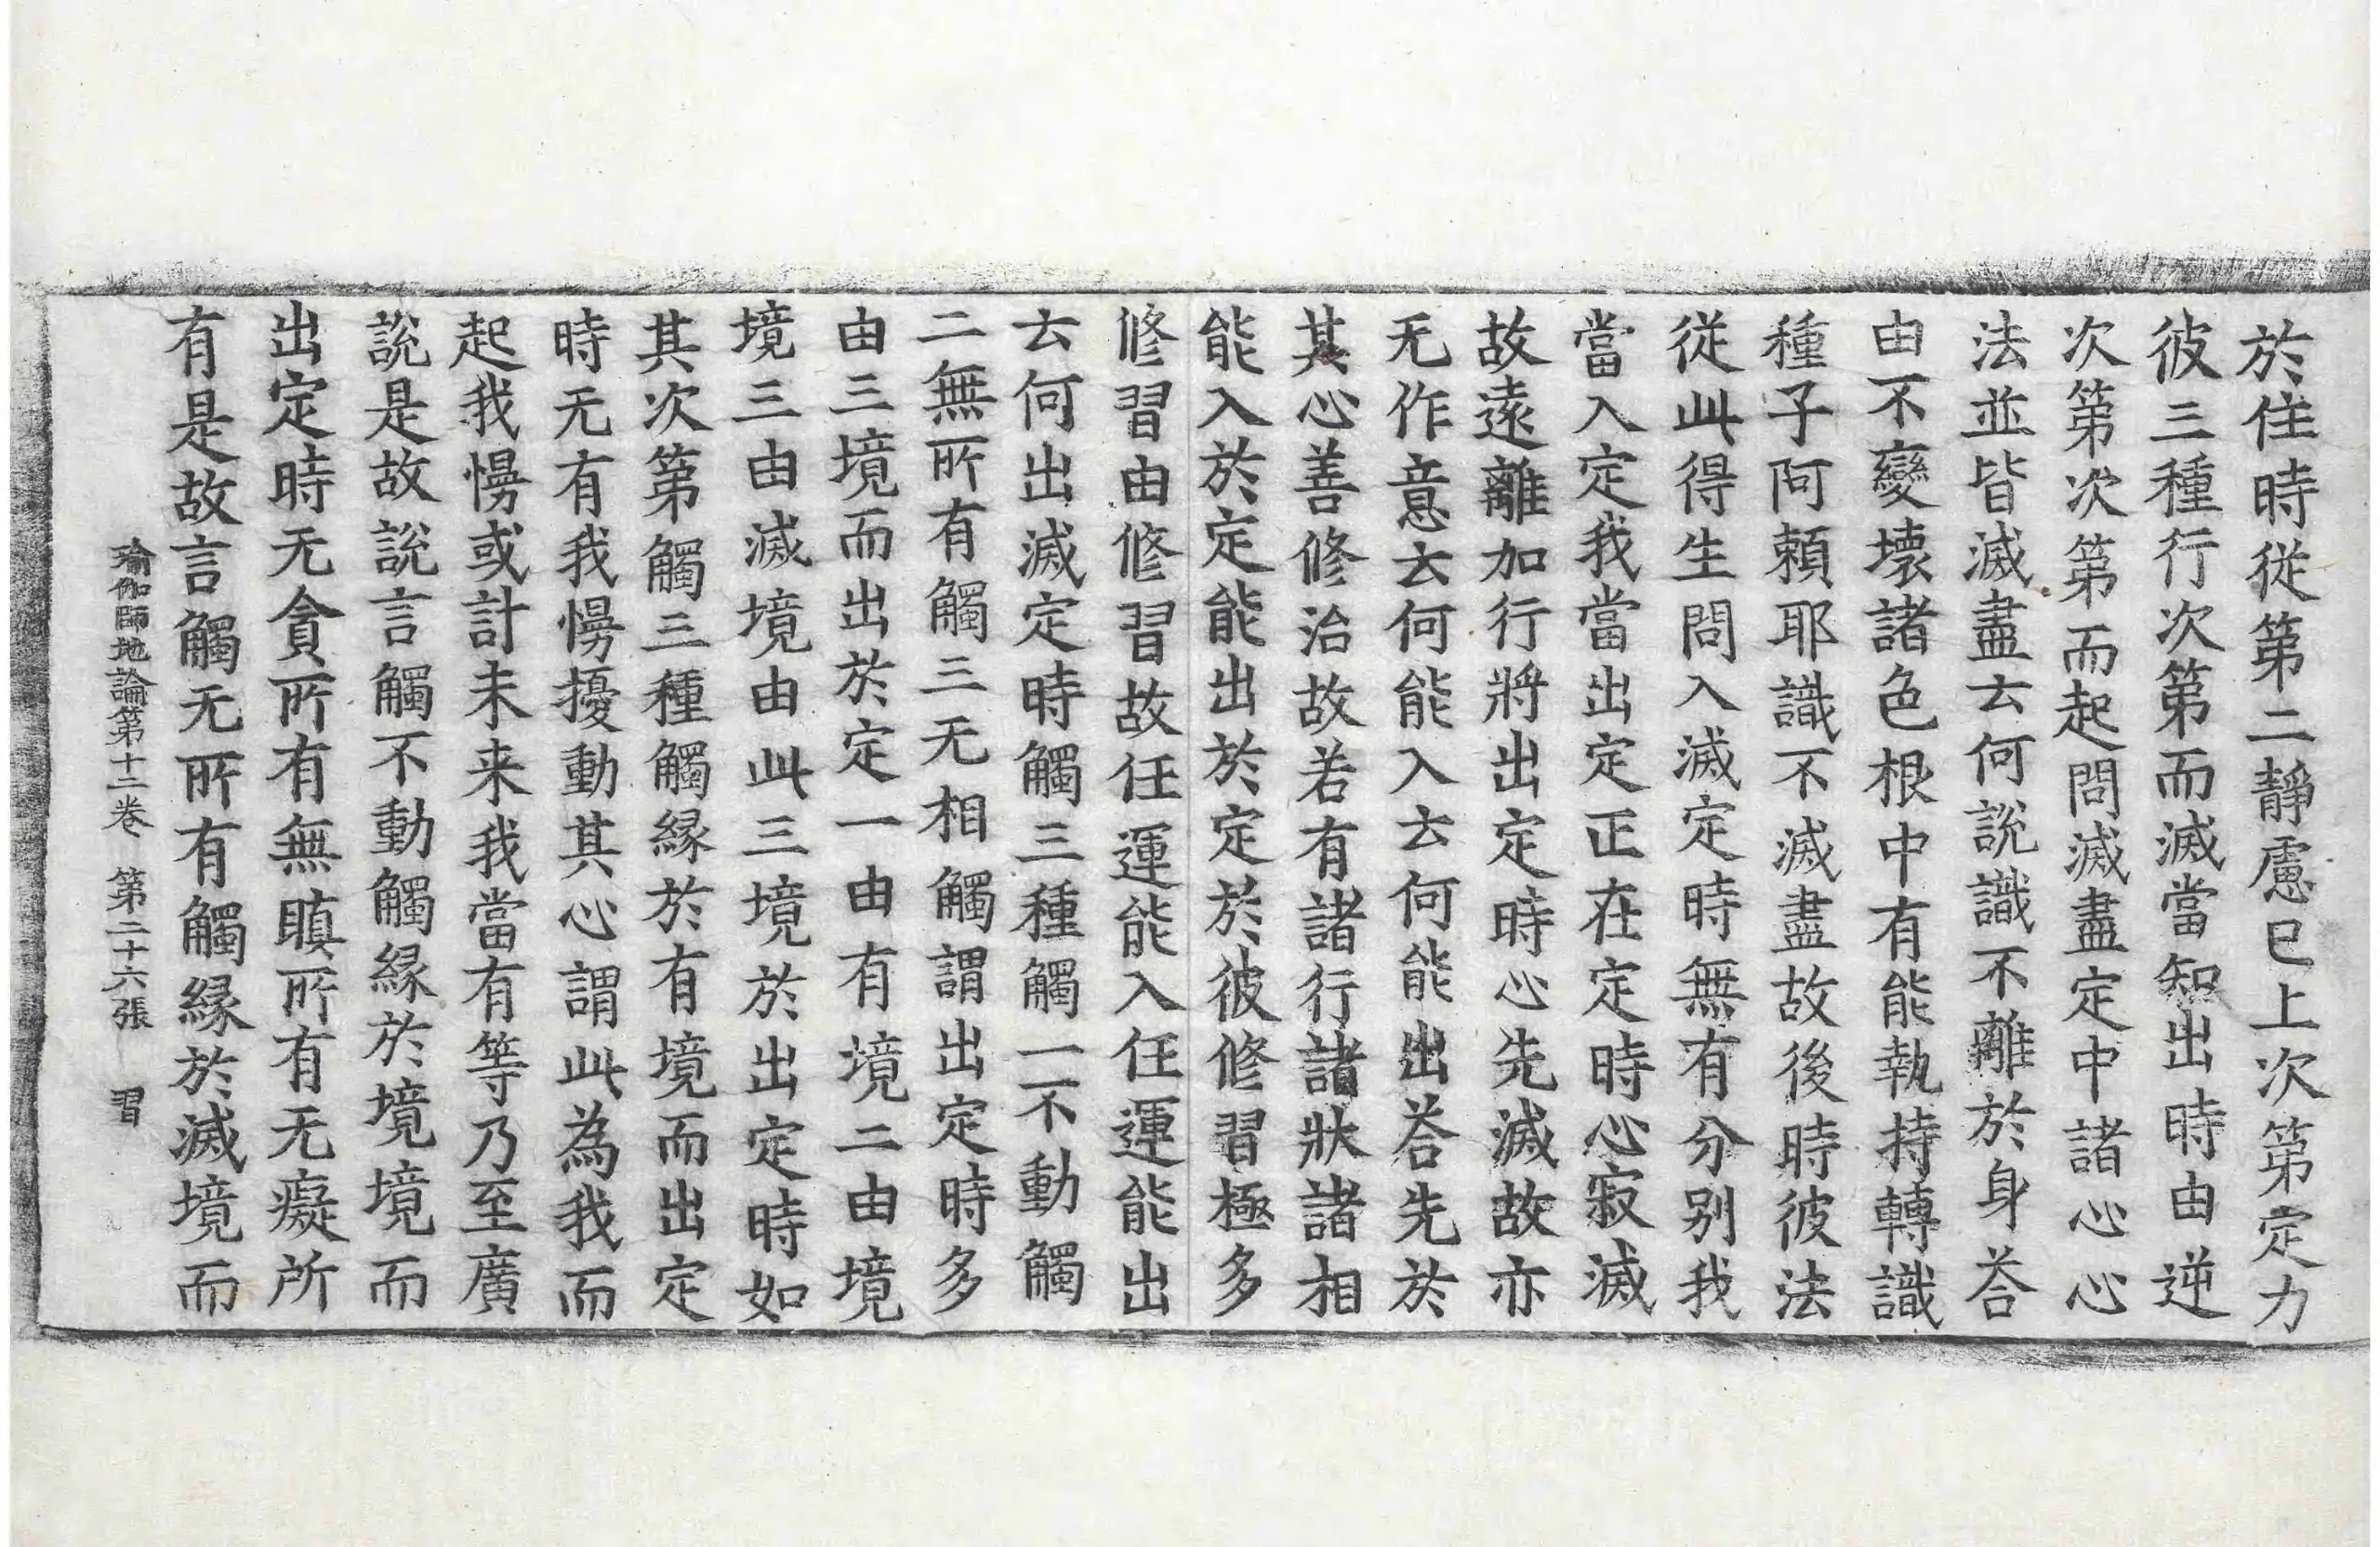 於住時從第二靜慮已上次第定力
彼三種行次第而滅當知出時由逆
次第次第而起問滅盡定中諸心心
法並皆滅盡云何說識不離於身荅
由不變壞諸色根中有能執持轉識
種子阿頼耶識不滅盡故後時彼法
從此得生問入滅定時無有分別我
當入定我當出定正在定時心寂滅
故遠離加行將出定時心先滅故亦
无作意云何能入云何能出荅先於
其心善修治故若有諸行諸狀諸相
能入於定能出於定於彼修習極多
修習由修習故任運能入任運能出
云何出滅定時觸三種觸一不動觸
二無所有觸三无相觸謂出定時多
由三境而出於定一由有境二由境
境三由滅境由此三境於出定時如
其次第觸三種觸緣於有境而出定
時无有我慢擾動其心謂此為我而
起我慢或計未来我當有等乃至廣
說是故說言觸不動觸緣於境境而
出定時无貪所有無瞋所有无癡所
有是故言觸无所有觸緣於滅境而
瑜伽師地論第十二卷　第二十六張　習